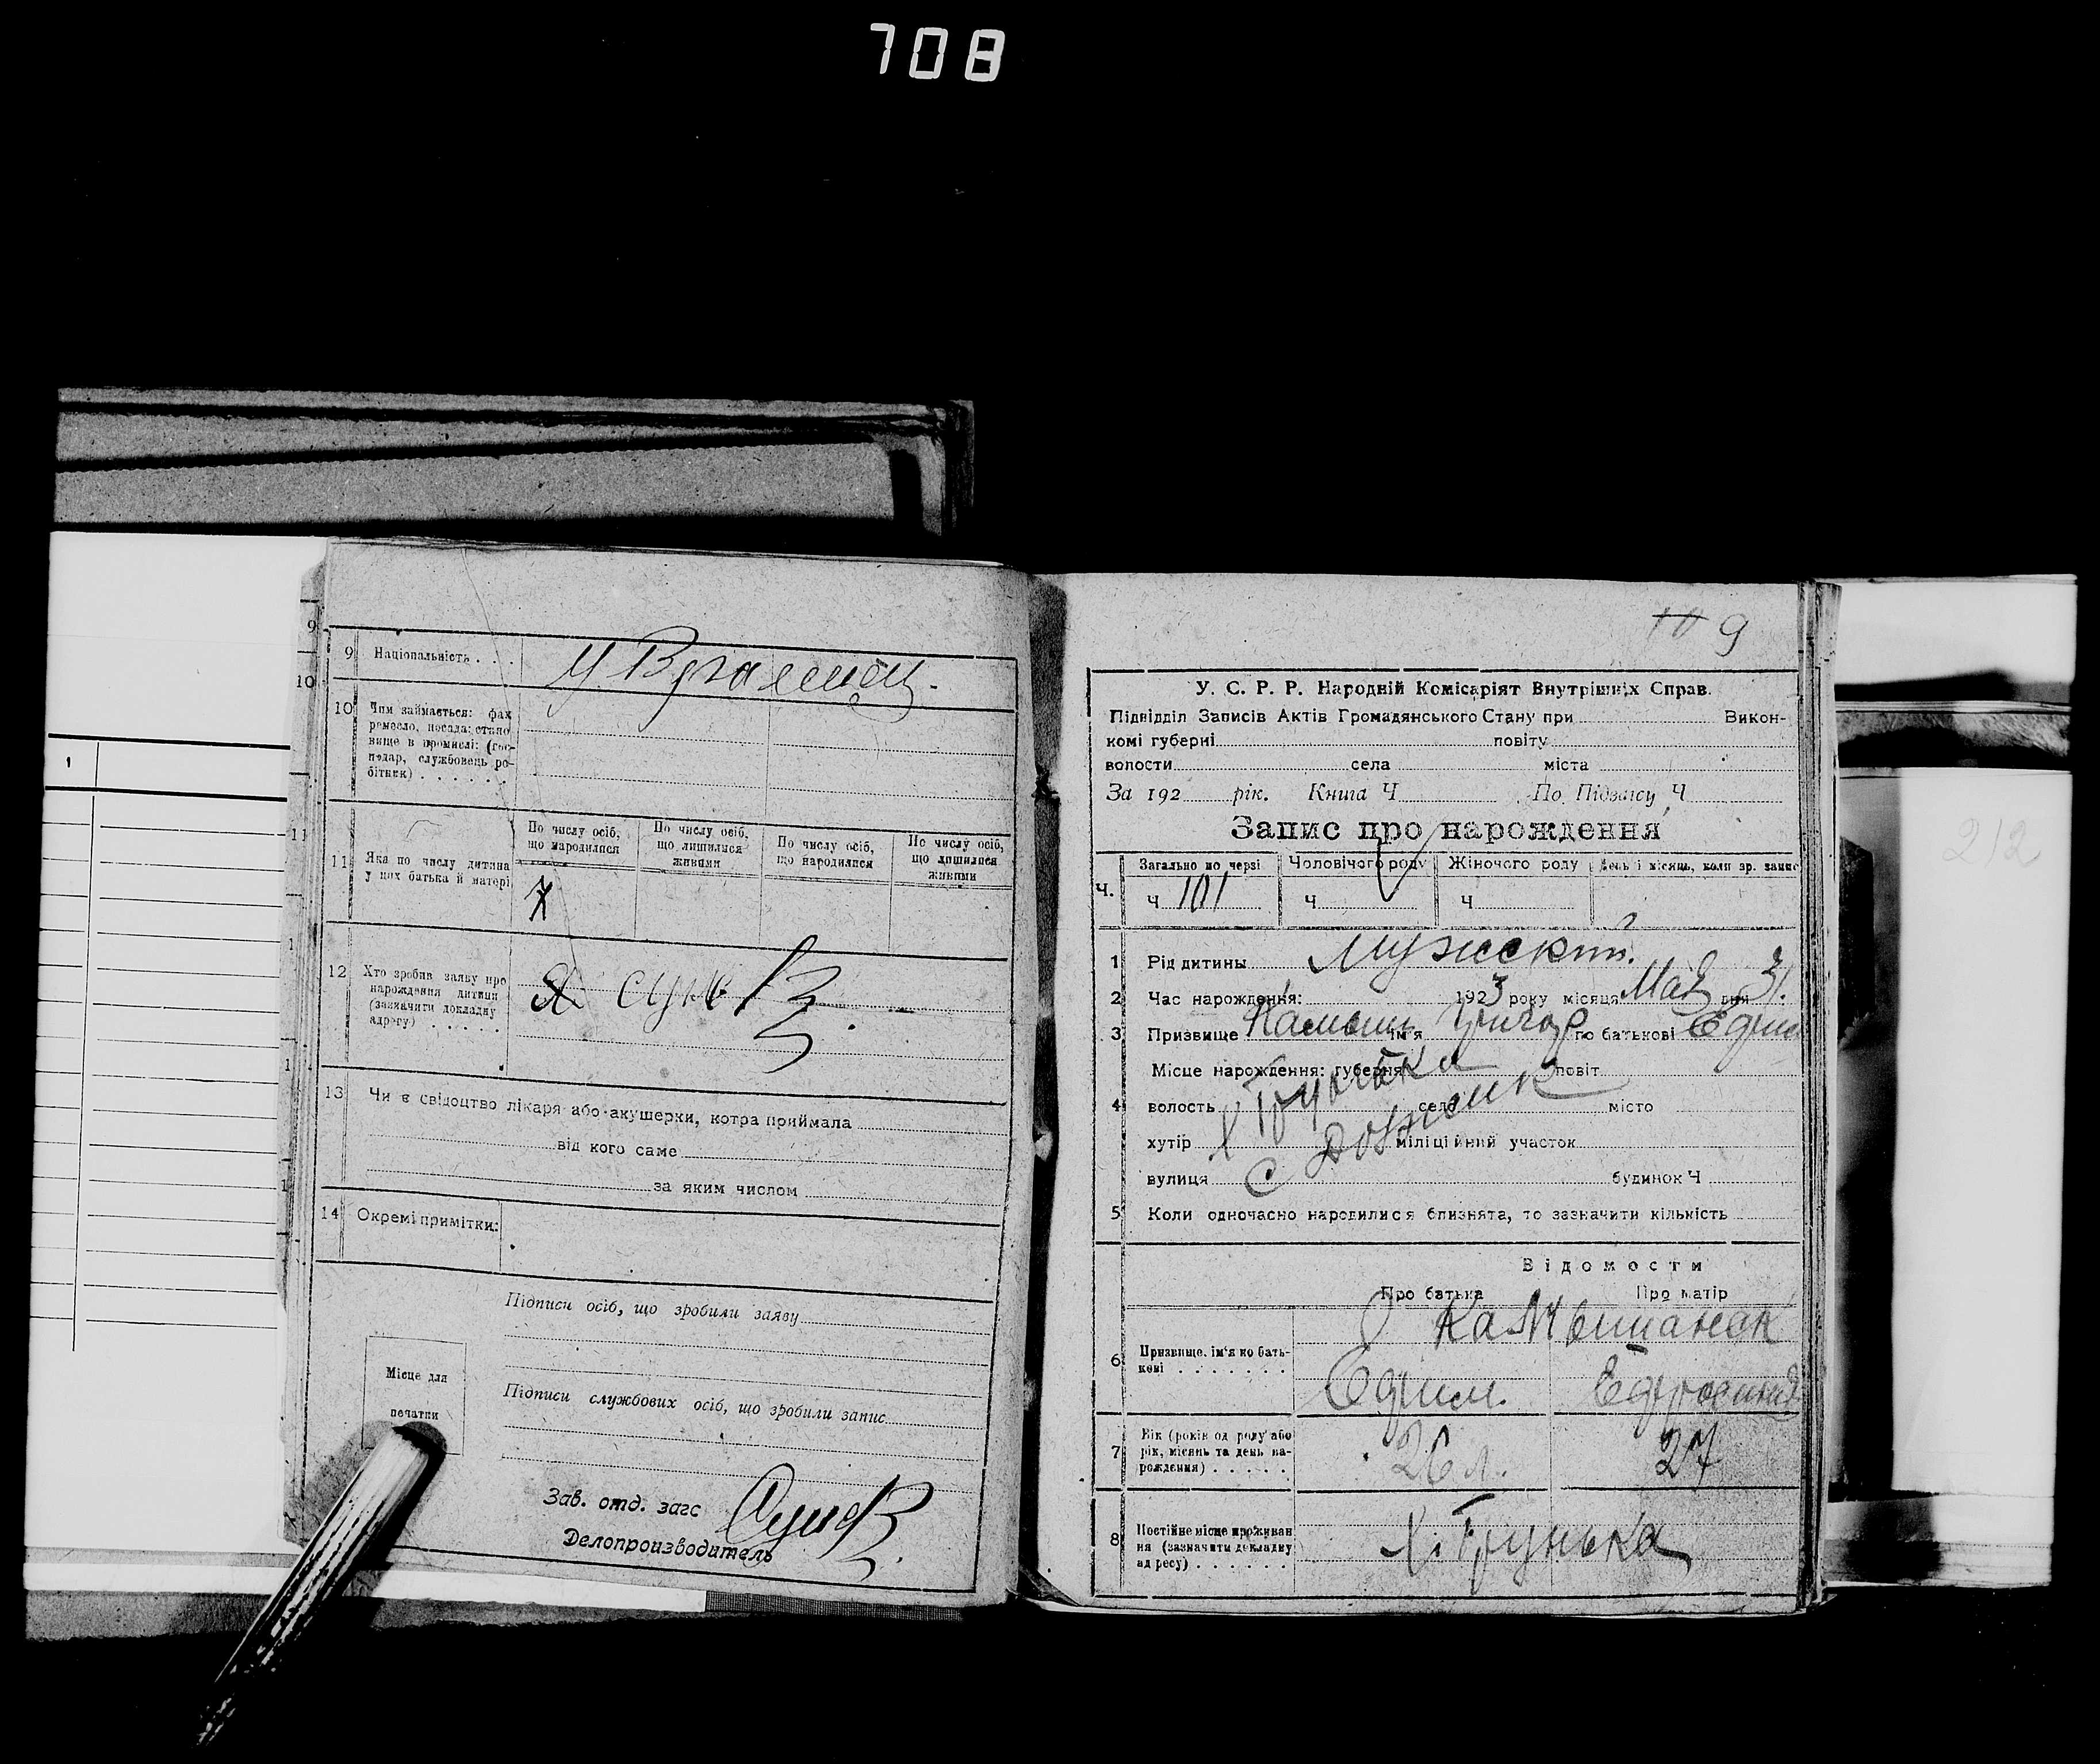 708
9
10
11
1
9 Національність . . . 
10 Чим займається: фах
ремесло, посада: стано
вище в промислі: (гос-
подар, службовець ро-
бітник) . . . . . .
11 Яка по числу дитина
у цих батька й матері
По числу осіб,
що народилися
По числу осіб,
що лишилися
живими
По числу осіб,
що народилися
По числу осіб,
що лишилися
живими
12 Хто зробив заяву про
нарождення дитини
(зазначити докладну
адресу) . . . . .
13 Чи є свідоцтво лікаря або акушерки, котра приймала
від кого саме
за яким числом
14 Окремі примітки:
Підписи осіб, що зробили заяву
Місце для
печатки
Підписи службових осіб, що зробили запис
Зав. отд. загс
Делопроизводитель
10 9
У. С. Р. Р. Народній Комісаріят Внутрішніх Справ.
Підвідділ Записів Актів Громадянського Стану при Викон-
комі губерні повіту
волости села міста
За 192 рік. Книга Ч По Підпису Ч
Запис про нарождення
Ч. Загально по черзі Чоловічого роду Жіночого роду День і місяць, коли зр. запис
Ч 101 Ч Ч
1 Рід дитины Мужской.
2 Час нарождення: 1923 року місяця Мая дня 31.
3 Призвище Камыш ім'я Григор по батькові Ефим
Місце нарождення: губерня повіт
4 волость село місто
хутір Х Грунька міліційний участок
вулиця С будинок Ч
5 Коли одночасно народилися близнята, то зазначити кількість
Відомости
Про батька Про матір
6 Призвище, ім'я по бать-
кові . . . . . . .
Камышанск
Ефим. Ефросиния
7 Вік (років од роду або
рік, місяць та день на-
рождення) . . . . .
26 л. 27
8 Постійне місце прожіван
ня (зазначити докладну
адресу) . . . . . .
Х. Грунька
212